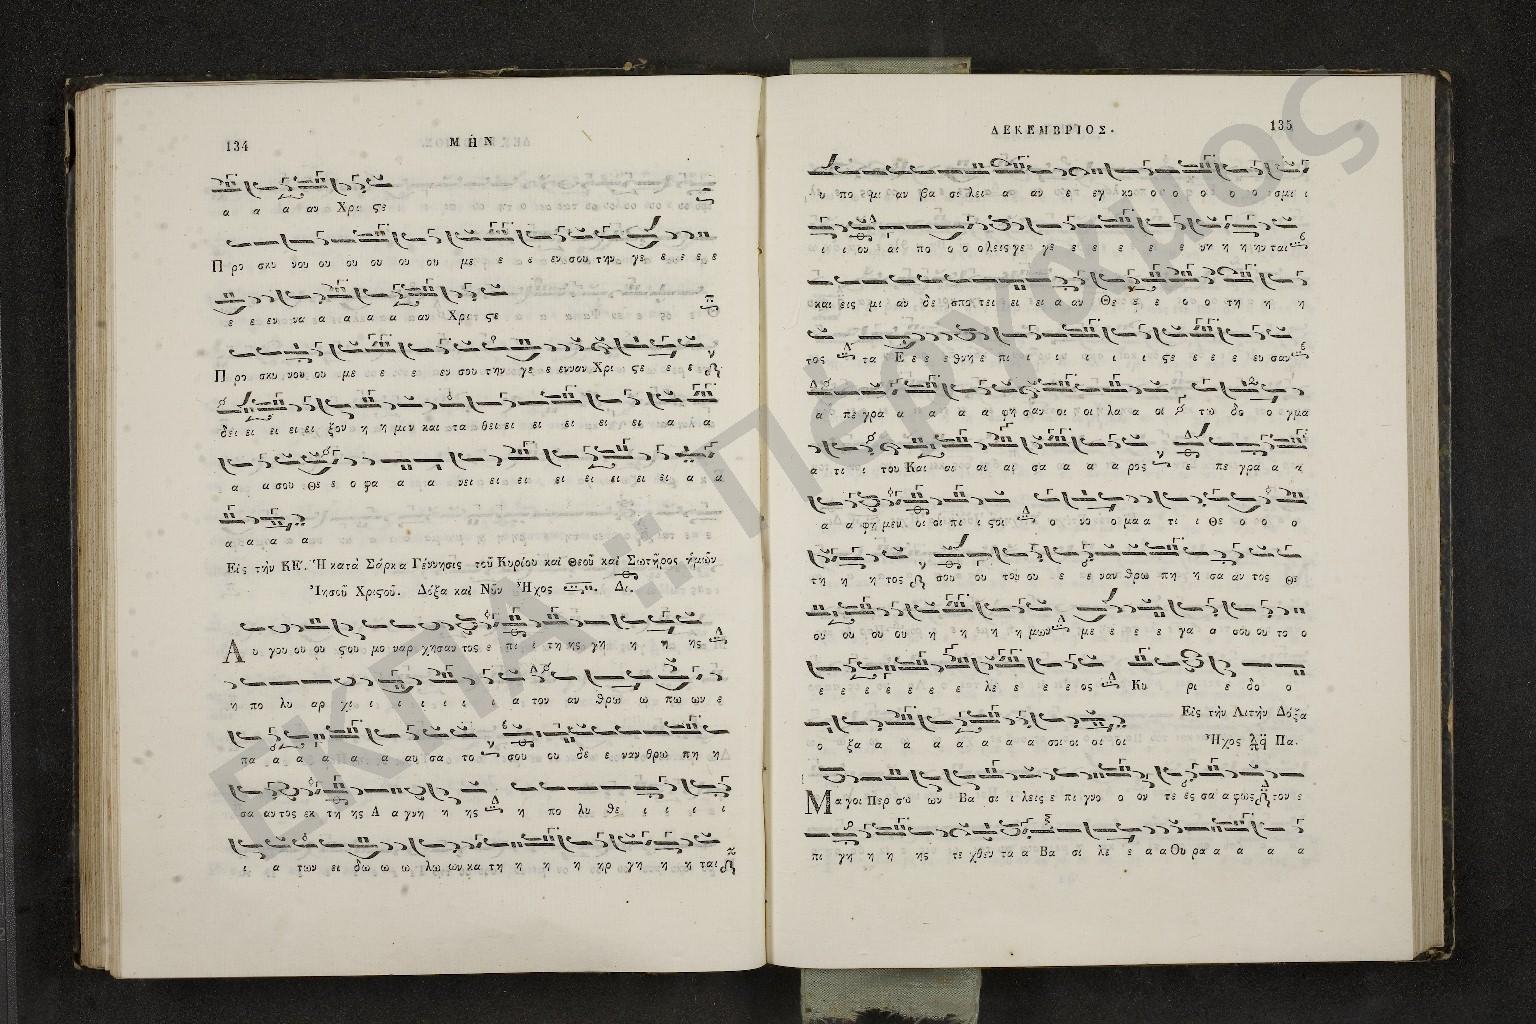 134
ΜΗΝ
α α α αν Χρι ϛε
Π ρο σκυ νου ου ου ου ου ου με ε ε εν σου την γε ε ε ε ε
ε ε εν να α α α α αν Χρι ϛε
Π ρο σκυ νου ου με ε ε εν σου την γε ε ενναν Χρι ϛε ε ε
δει ει ει ει ει ξον η η μιν και τα θει ει ει ει ει ει α α α
α α σου Θε ε ο φα α α νει ει ει ει ει ει ει ει α α
α α α α
Εἰς τὴν ΚΕ΄. Ἡ κατὰ Σάρκα Γέννησις τοῦ Κυρίου καὶ Θεοῦ καὶ Σωτῆρος ἡμῶν
Ἰησοῦ Χριϛοῦ. Δόξα καὶ Νῦν Ἦχος Δι.
Α υ γου ου ου ϛου μο ναρ χησαν τος ε πι ι της γη η η ης
η πο λυ αρ χι ι ι ι ι ι ι α των αν θρω ω πω ων ε
πα α α α α α αυ σα το σου ου δε ε ναν θρω πη η
σα αν τος εκ τη ης Α α γνη η ης η πο λυ θε ι ι ι ι
ι α των ει δω ω ω λω ων κα τη η η η ηρ γη η η ται
ΔΕΚΕΜΒΡΙΟΣ.
135
υ πο μι αν βα σι λει α αν ε εγ κο ο ο ο ο ο ο σμι ι
ι ι ον αι πο ο ο ο λεις γε γε ε ε ε ε ε ε νη η η ην ται
και εις μι αν δε σπο τει ει ει α αν Θε ε ε ο ο τη η η
τος τα Ε ε ε ε θνη ε πι ι ι ι ι ι ι ϛε ε ε ε ευ σαν
α πε γρα α α α α φη σαν οι οι λα α οι τω δο ο γμα
α τι ι του Και αι αι αι σα α α α ρος ε πε γρα α α
α α φη μεν οι οι πι ι ϛοι ο νο ο μα α τι ι Θε ο ο ο
τη η η τος σου ου του ου ε ε ναν θρω πη η σα αν τος Θε
ου ου ου ου η η η η μων με ε ε ε γα α σου ου το ο
ε ε ε ε ε ε ε λε ε ε ε ος Κυ ρι ε δο ο
ο ξα α α α α α α α σοι οι οι οι
Εἰς τὴν Λιτὴν Δόξα
Ἦχος Πα.
Μ α γοι Περ σω ων Βα σι ι λεις ε πι γνο ο ον τε ες σα α φως τον ε
πι γη η η ης τε χθεν τα α Βα σι λε ε α α Ου ρα α α α α
ΕΚΠΑ :: Πέργαμος